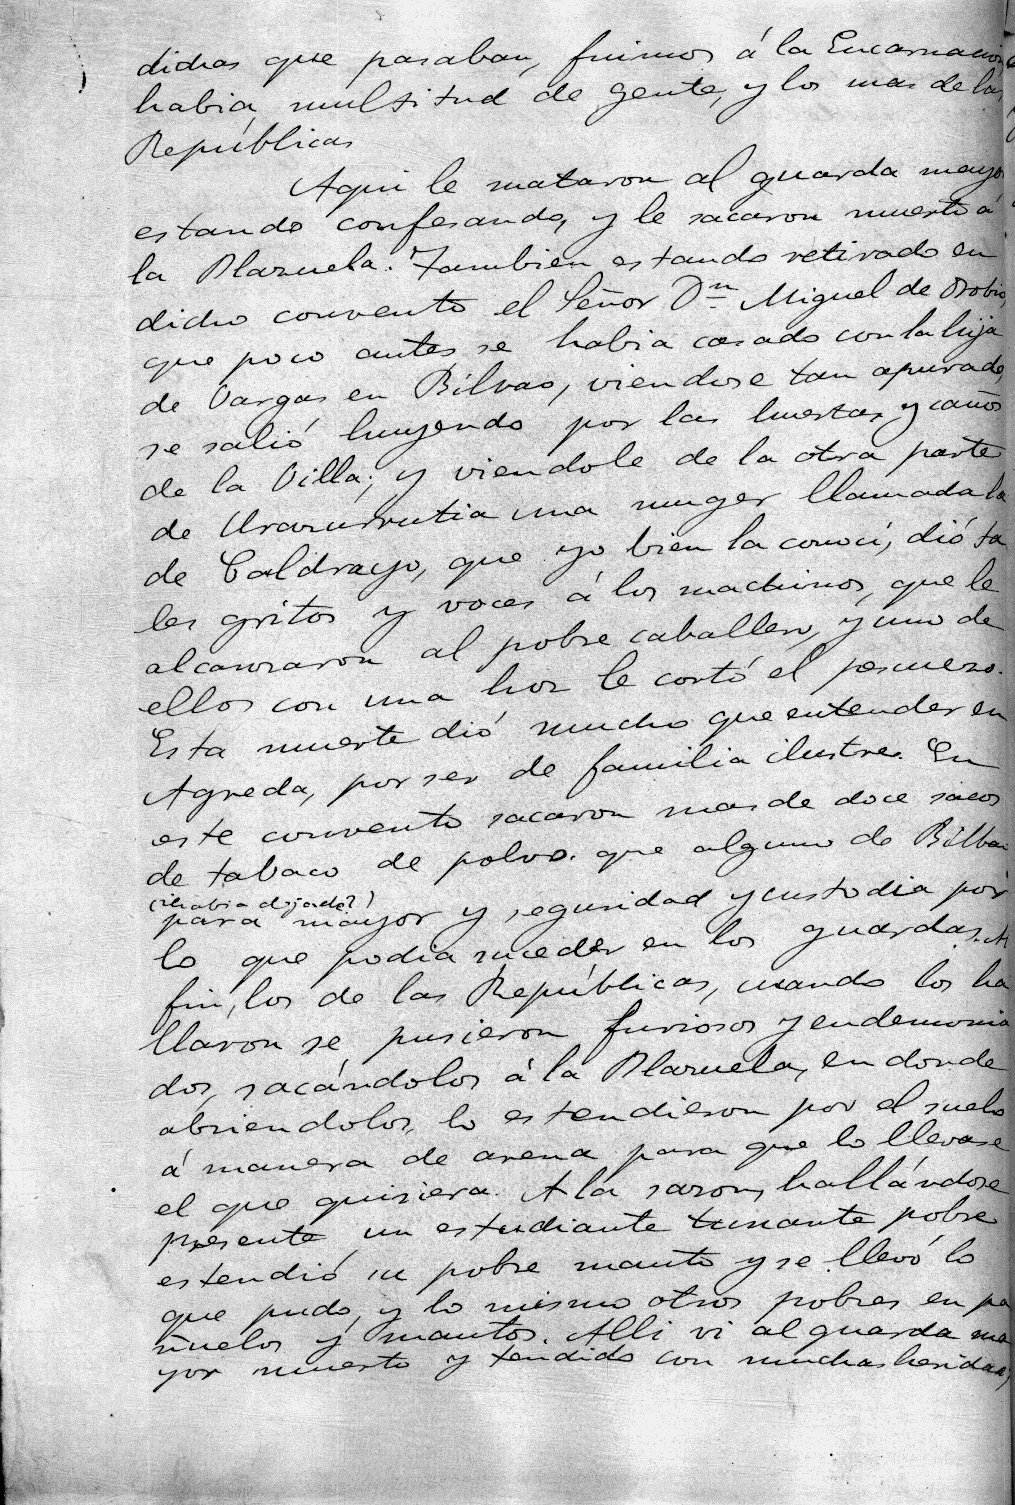 dichas que pasaban, fuimos á la Encarnación
habia multitud de gente, y los mas de las
Repúblicas
Aqui le mataron al guarda mayor
estando confesando, y le sacaron muerto á
la Plazuela. Tambien estando retirado en
dicho convento el Señor Dn Miguel de Orobio,
que poco antes se habia casado con la hija
de Vargas en Bilvao, viendose tan apurado,
se salió huyendo por las huertas y caños
de la Villa; y viendole de la otra parte
de Urazurrutia una muger llamada la
de Caldrayo, que yo bien la conocí, dió ta
les gritos y voces á los machinos, que le
alcanzaron al pobre caballero, y uno de
ellos con una hoz le cortó el pescuezo.
Esta muerte dió mucho que entender en
Agreda, por ser de familia ilustre. En
este convento sacaron mas de doce sacos
de tabaco de polvo. que alguno de Bilbao
(¿habia dejado?)
para mayor y seguridad y custodia por
lo que podia suceder en los guardas. Al
fin, los de las Repúblicas, cuando los ha
llaron se pusieron furiosos y endemonia
dos, sacándolos á la Plazuela, en donde
abriendolos, lo estendieron por el suelo
á manera de arena para que lo llevase
el que quisiera. A la sazon, hallándose
presente un estudiante tunante pobre
estendió su pobre manto y se llevó lo
que pudo, y lo mismo otros pobres en pa
ñuelos y mantos. Alli vi al guarda ma
yor muerto y tendido con muchas heridas,